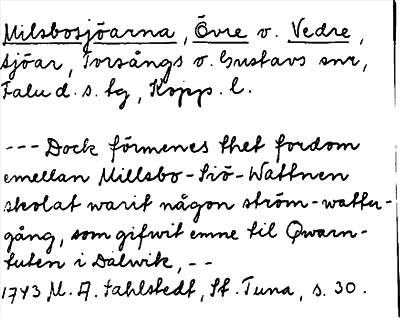 Milsbosjöarna, Övre o. Nedre,
sjöar, Torsångs o. Gustavs snr,
Falu d. s. tg, Kopp. l.
--- Dock förmenes thet fordom
emellan Millsbo-Siö-Wattnen
skolat warit någon ström-watten-
gång, som gifwit emne til Qwarn-
tuten i Dalwik, --
1743 M. A. Sahlstedt, St. Tuna, s. 30.